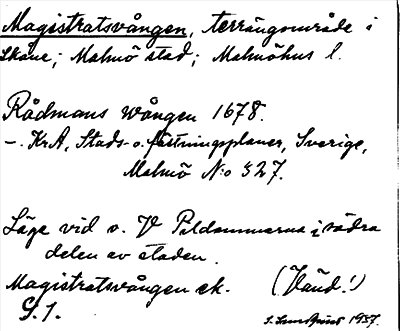 Magistratsvången, terrängområde i
Skåne; Malmö stad; Malmöhus l.
Rådmans Wången 1678.
–. KrA, Stads- o. fästningsplaner, Sverige,
Malmö N:o 327.
Läge vid o. V Pildammarna i södra
delen av staden.
Magistratsvången ek. (Vänd!)
S. 1.
1937.